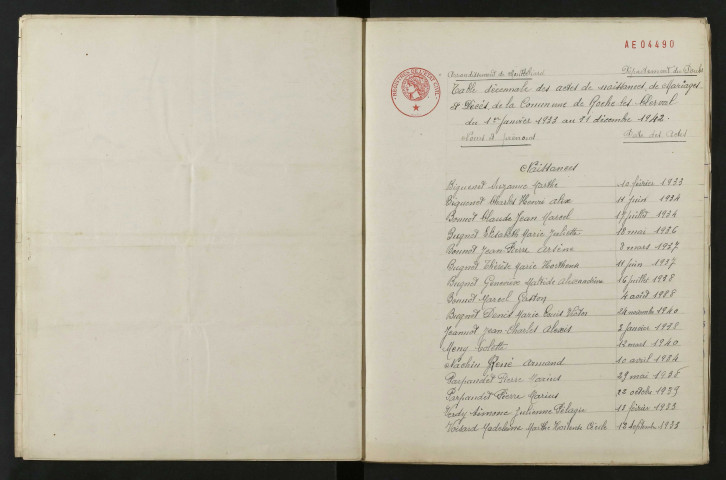 AE04490
REGISTRES DE L'ETAT CIVIL
Arrondissement de Montbéliard
Département du Doubs
Table décennale des actes de naissances, de Mariages
et Décès de la Commune de Roche les Clerval
du 1er janvier 1933 au 31 décembre 1942.
Noms et prénoms
Date des Actes
Naissances
Suzanne Marthe 10 février 1933
Charles Henri 11 juin 1934
Bonnot Claude Jean Marcel 17 juillet 1934
Bugnot Elisabeth Marie Juliette 18 mai 1936
Bonnot Jean Pierre Arsène 8 mars 1937
Bugnot Thérèse Marie Hortense 11 juin 1937
Bugnot Geneviève Mathilde 16 juillet 1938
Bonnot Marcel Gaston 4 août 1938
Bugnot Denis Marie Louis 24 novembre 1940
Jeannot Jean Charles Alexis 3 janvier 1938
Mony Colette 12 mars 1940
Nachin René Armand 10 avril 1934
Parpandet Pierre Marius 29 mai 1938
Parpandet Pierre Marius 22 octobre 1939
Simone Julienne 11 février 1933
Voisard Madeleine Marthe Cécile 12 septembre 1935